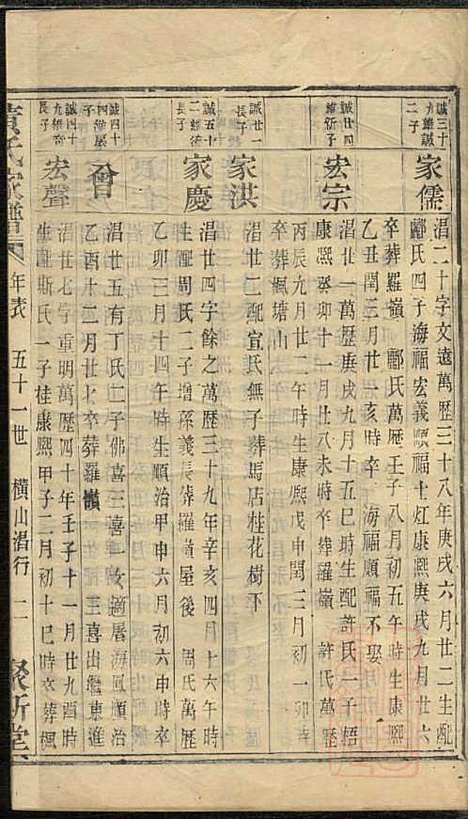 誠三十
九維誠
二子
家儒
淐二十字文遠萬歷三十八年庚戌六月廿二生配
酈氏四子海福宏義順福十灴康熙庚戌九月廿六
卒葬羅嶺 酈氏萬歷壬子八月初五午時生康熙
乙丑閏三月廿一亥時卒 海福順福不娶
誠廿四
維新子
宏宗
淐廿一萬歷庚戌九月十五巳時生配許氏一子梧
康熙癸卯十一月廿八未時卒葬羅嶺 許氏萬歷
丙辰九月廿二午時生康熙戊申閏三月初一卯時
卒葬楓塘山
誠廿二
長子
家洪
淐廿二配宣氏無子葬馬店桂花樹下
誠五十
二維
長子
家慶
淐廿四字餘之萬歷三十九年辛亥四月十六午時
生配周氏二子增孫義長葬羅嶺屋後 周氏萬歷
乙卯三月十四午時生順治甲申六月初六申時卒
誠四十
四維
子
會
淐廿五有丁氏二子佛喜三喜一女適屠海鳳順治
乙酉十二月廿七卒葬羅嶺 三喜出繼東進
誠四十
九維
長子
宏聲
淐廿七字重明萬歷四十年壬子十一月廿九酉時
生配斯氏一子桂康熙甲子二月初十巳時卒葬楓
黃氏家譜 年表 五十一世 橫山淐行 二 聚斯堂